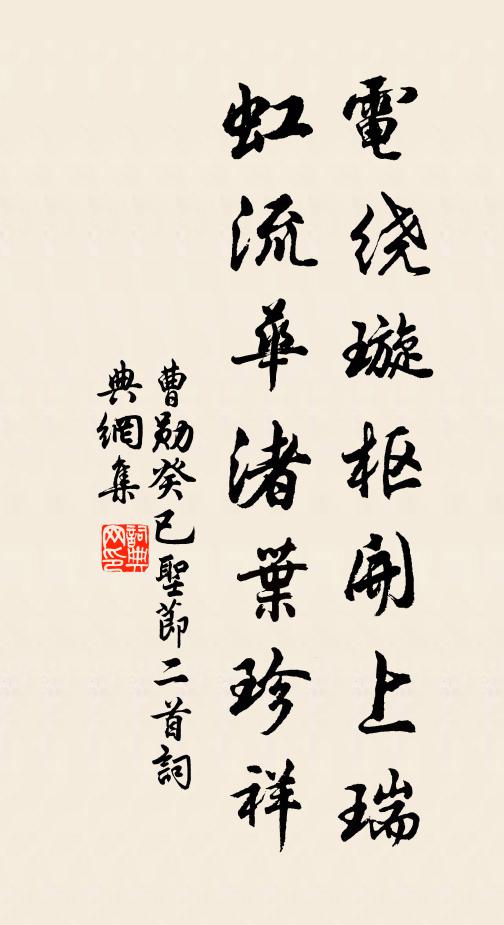 電绕璇枢開上瑞
虹流華渚葉珍祥
曹勛癸巳聖節二首詞
典網集
詞典网印